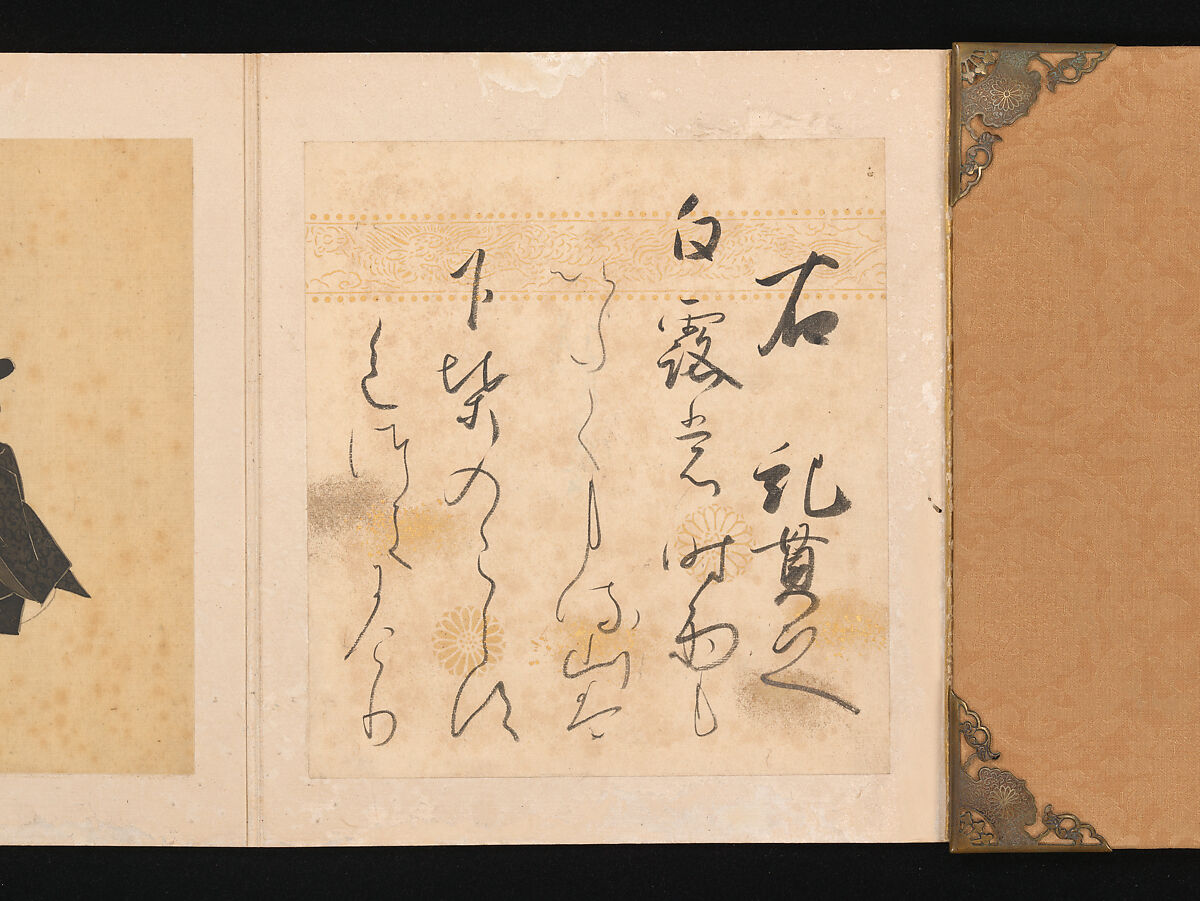 右　紀貫之
白露も時雨も
いたくもる山は
下葉のこらす
色つきにけり